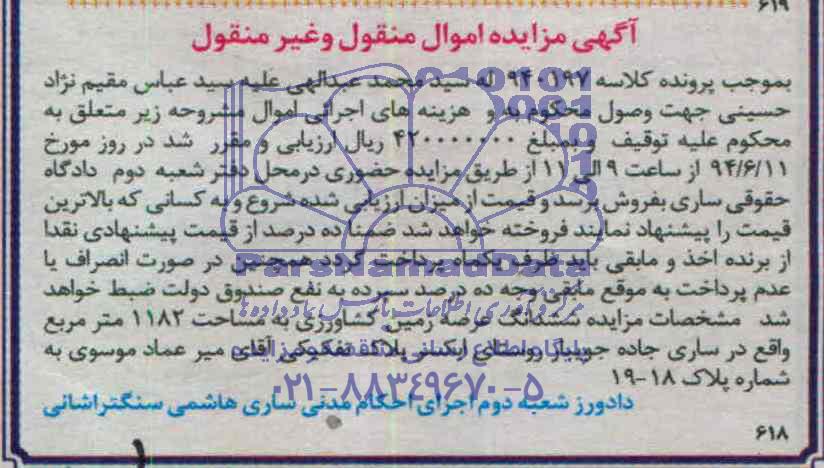 ۶۱۹
آگهی مزایده اموال منقول وغیر منقول
بموجب پرونده کلاسه ۹۴۰۱۹۷ له سید محمد عبدالهی علیه سید عباس مقیم نژاد
حسینی جهت وصول محکوم به و هزینه های اجرائی اموال مشروحه زیر متعلق به
محکوم علیه توقیف و بمبلغ ۴۲۰۰۰۰۰۰۰ ریال ارزیابی و مقرر شد در روز مورخ
۹۴/۶/۱۱ از ساعت ۹ الی ۱۱ از طریق مزایده حضوری درمحل دفتر شعبه دوم دادگاه
حقوقی ساری بفروش برسد و قیمت از میزان ارزیابی شده شروع و به کسانی که بالاترین
قیمت را پیشنهاد نمایند فروخته خواهد شد ضمنا ده درصد از قیمت پیشنهادی نقدا
از برنده اخذ و مابقی باید ظرف یکماه پرداخت گردد همچنین در صورت انصراف یا
عدم پرداخت به موقع مابقی وجه ده درصد سپرده به نفع صندوق دولت ضبط خواهد
شد مشخصات مزایده ششدانگ عرصه زمین کشاورزی به مساحت ۱۱۸۲ متر مربع
واقع در ساری جاده جویبار روستای ابکسر پلاک تفکوکی آقای میر عماد موسوی به
شماره پلاک ۱۸-۱۹
دادورز شعبه دوم اجرای احکام مدنی ساری هاشمی سنگتراشانی
۶۱۸
ParsNamadData
مرکز فرآوری اطلاعات پارس نماد داده ها
پایگاه اطلاع رسانی مناقصه و مزایده
۰۲۱-۸۸۳۴۹۶۷۰-۵